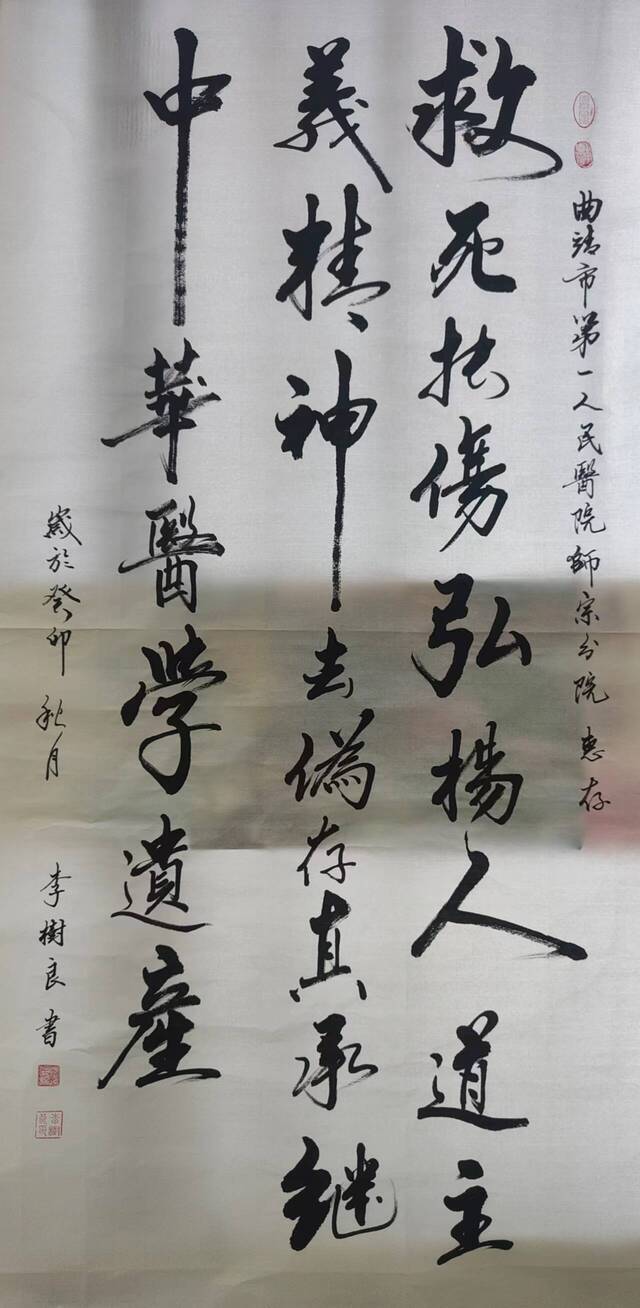 曲靖市第一人民醫院師宗分院 惠存
救死扶傷弘揚人道主
義精神去偽存真承繼
中華醫學遺產
歲於癸卯秋月
李樹良書